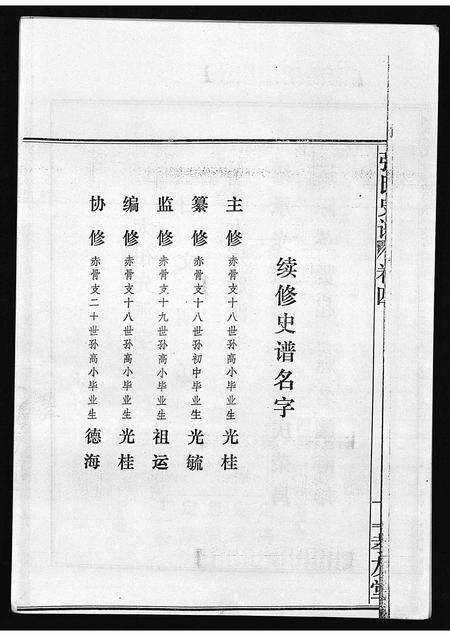 张氏史谱 卷四
孝友堂
续修史谱名字
主修 赤骨支十八世孙高小毕业生 光桂
纂修 赤骨支十八世孙初中毕业生 光毓
监修 赤骨支十九世孙高小毕业生 祖运
编修 赤骨支十八世孙高小毕业生 光桂
协修 赤骨支二十世孙高小毕业生 德海